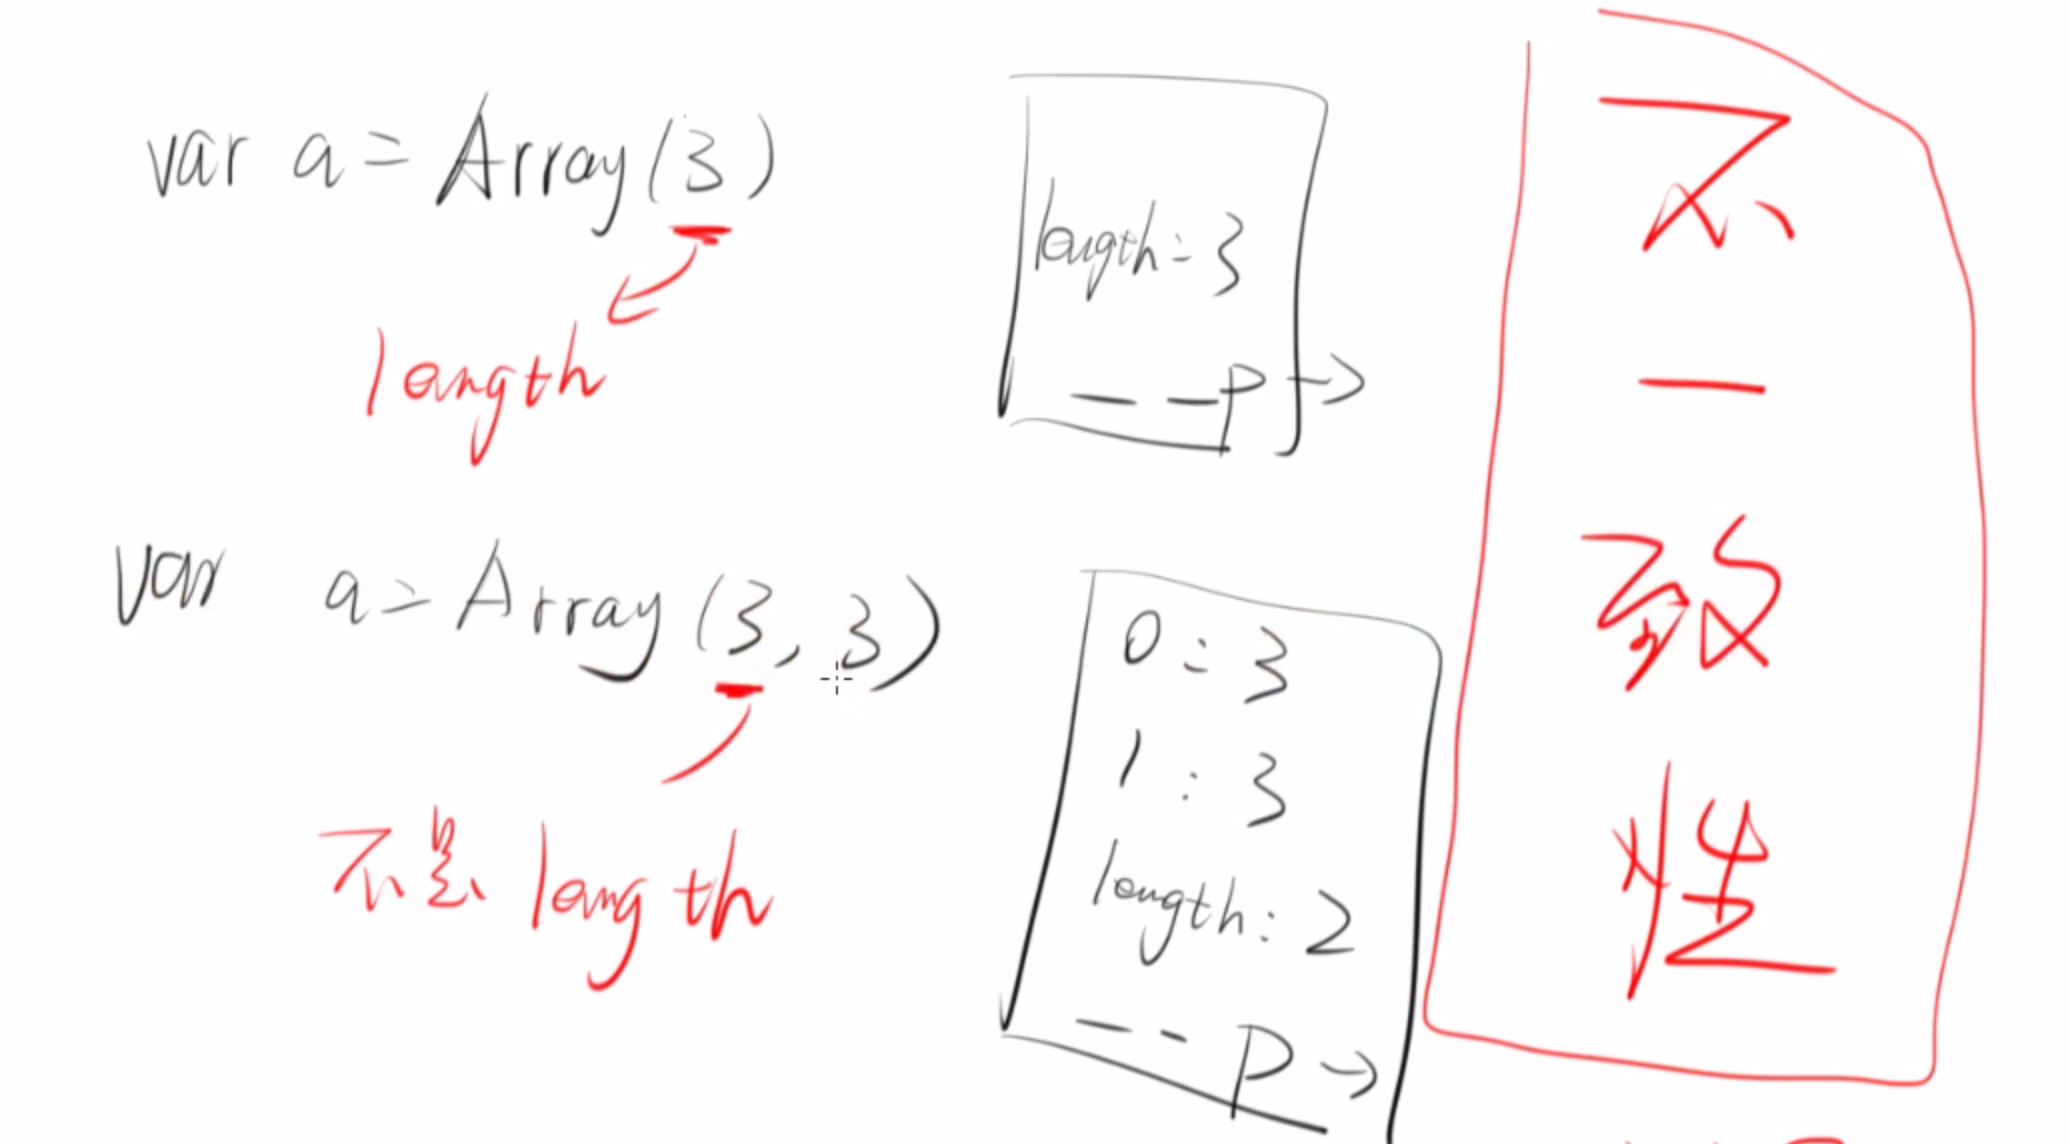 var a = Array(3)
length
length : 3
__p →
var a = Array(3, 3)
不是 length
0 : 3
1 : 3
length : 2
__p →
不
一
致
性